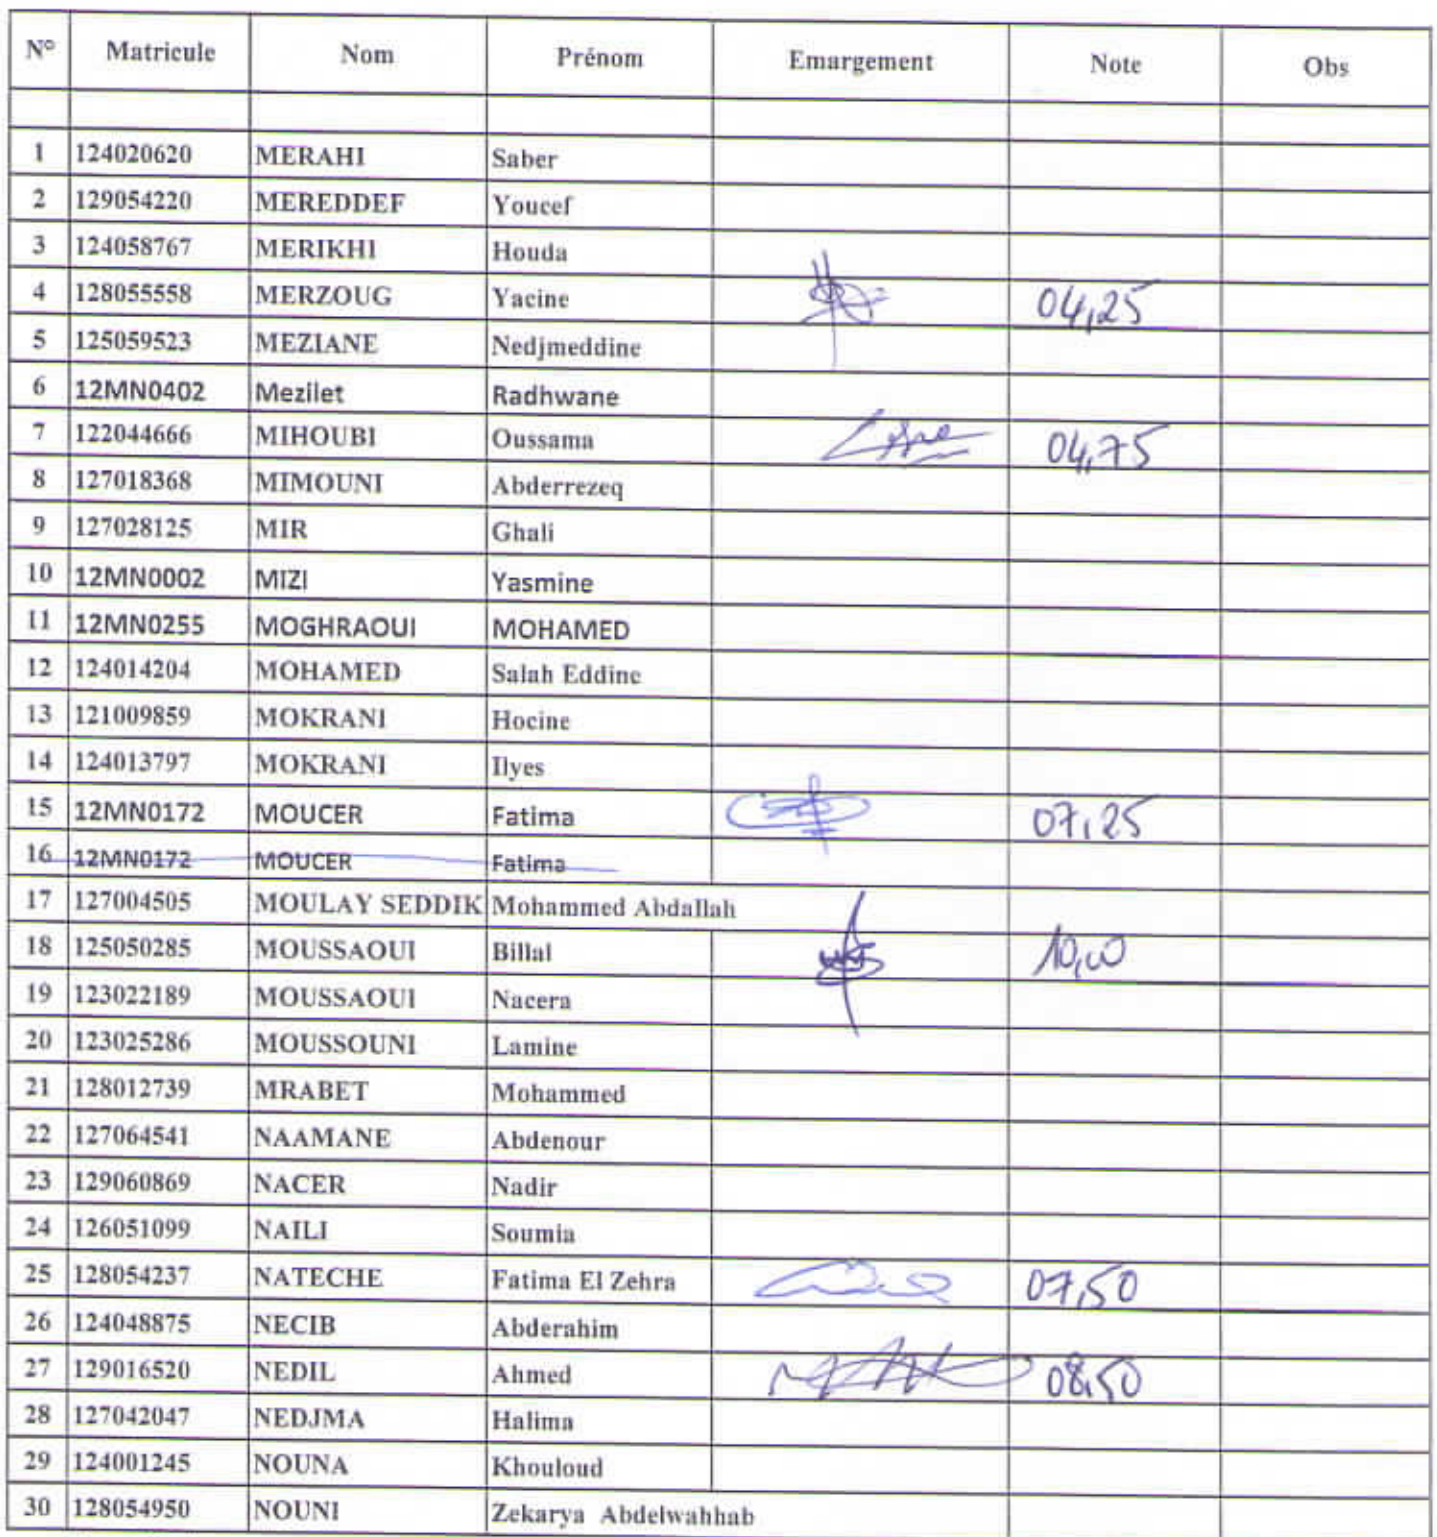 N° Matricule Nom Prénom Emargement Note Obs
1 124020620 MERAHI Saber
2 129054220 MEREDDEF Youcef
3 124058767 MERIKHI Houda
4 128055558 MERZOUG Yacine 04,25
5 125059523 MEZIANE Nedjmeddine
6 12MN0402 Mezilet Radhwane
7 122044666 MIHOUBI Oussama 04,75
8 127018368 MIMOUNI Abderrezeq
9 127028125 MIR Ghali
10 12MN0002 MIZI Yasmine
11 12MN0255 MOGHRAOUI MOHAMED
12 124014204 MOHAMED Salah Eddine
13 121009859 MOKRANI Hocine
14 124013797 MOKRANI Ilyes
15 12MN0172 MOUCER Fatima 07,25
16 12MN0172 MOUCER Fatima
17 127004505 MOULAY SEDDIK Mohammed Abdallah
18 125050285 MOUSSAOUI Billal 10,00
19 123022189 MOUSSAOUI Nacera
20 123025286 MOUSSOUNI Lamine
21 128012739 MRABET Mohammed
22 127064541 NAAMANE Abdenour
23 129060869 NACER Nadir
24 126051099 NAILI Soumia
25 128054237 NATECHE Fatima El Zehra 07,50
26 124048875 NECIB Abderahim
27 129016520 NEDIL Ahmed 08,50
28 127042047 NEDJMA Halima
29 124001245 NOUNA Khouloud
30 128054950 NOUNI Zekarya Abdelwahhab